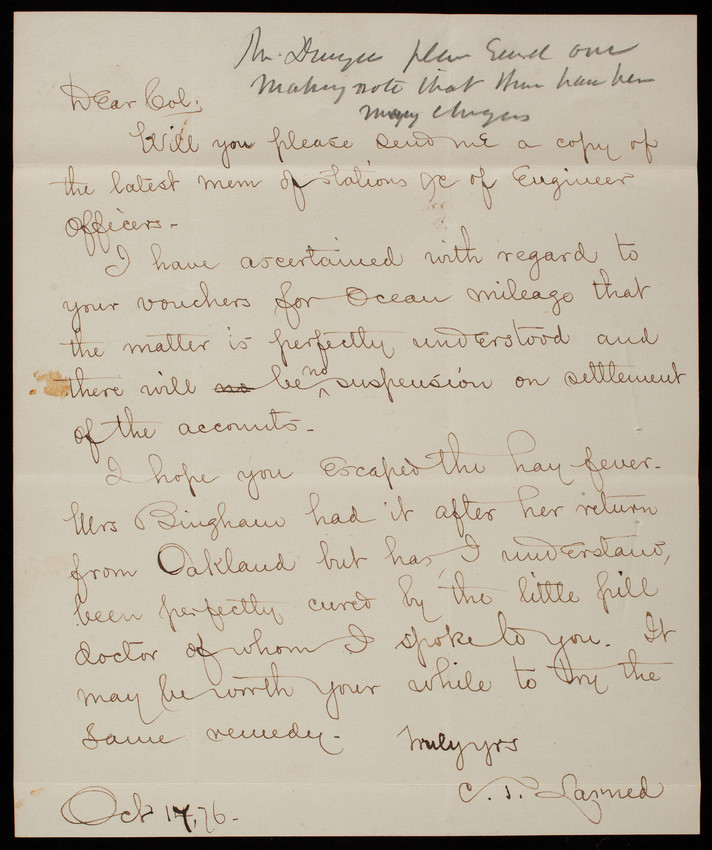 please send one
Making note that there have been
many changes
Dear Col;
Will you please send me a copy of
the latest mem of stations &c of Engineer
Officers -
I have ascertained with regard to
your vouchers for Ocean mileage that
the matter is perfectly understood and
there will no be no suspension on settlement
of the accounts -
I hope you escaped the hay fever -
Mrs Bingham had it after her return
from Oakland but has, I understand,
been perfectly cured by the little pill
doctor of whom I spoke to you. It
may be worth your while to try the
same remedy -
Truly yrs
C. T. Larned
Oct 17, 76 -